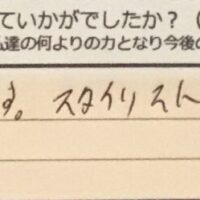 ていかがでしたか？（
ム達の何よりの力となり今後の
す。スタイリスト